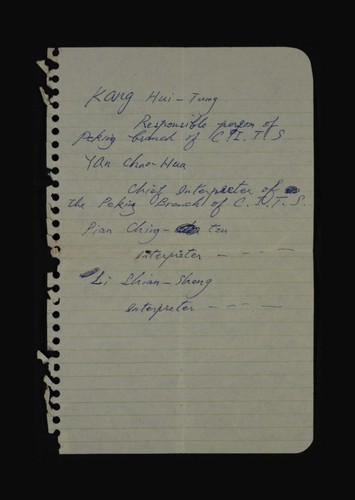 Kang Hui-Tung
Responsible person of
Peking branch of C.I.T.S
Yan Chao-Hua
Chief Interpreter of
the Peking Branch of C.I.T.S.
Pian Ching- tou
Interpreter - - - -
Li Shian-Sheng
Interpreter - - - -